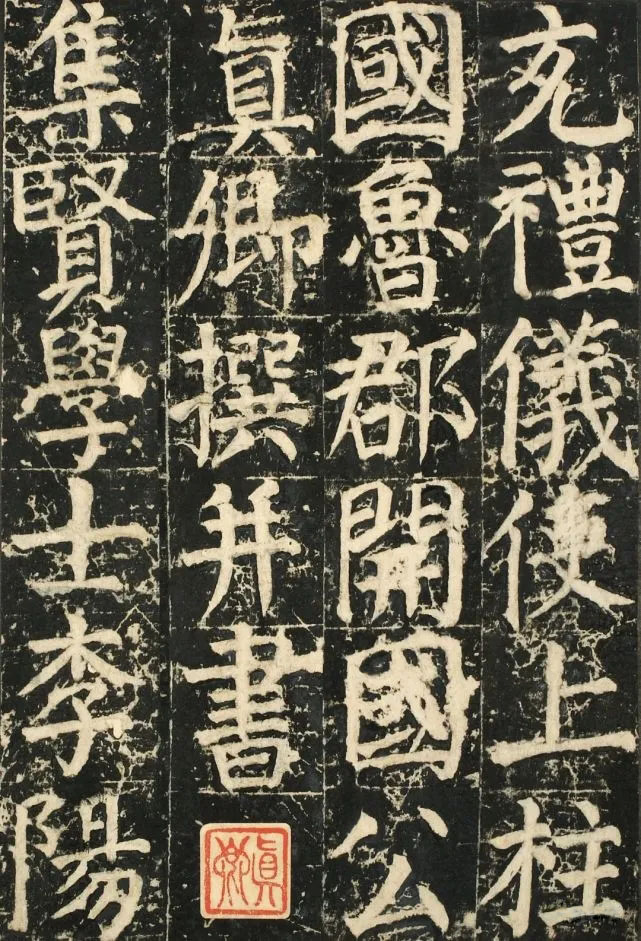 充禮儀使上柱
國魯郡開國公
真卿撰并書
真卿
集賢學士李陽